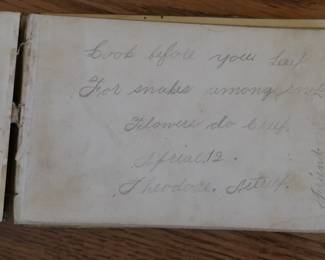 Look before you leap
For snakes among
Flowers do creep.
April 12.
Theodore.